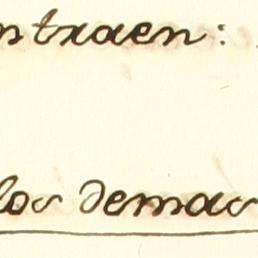 ntraen:
los demas